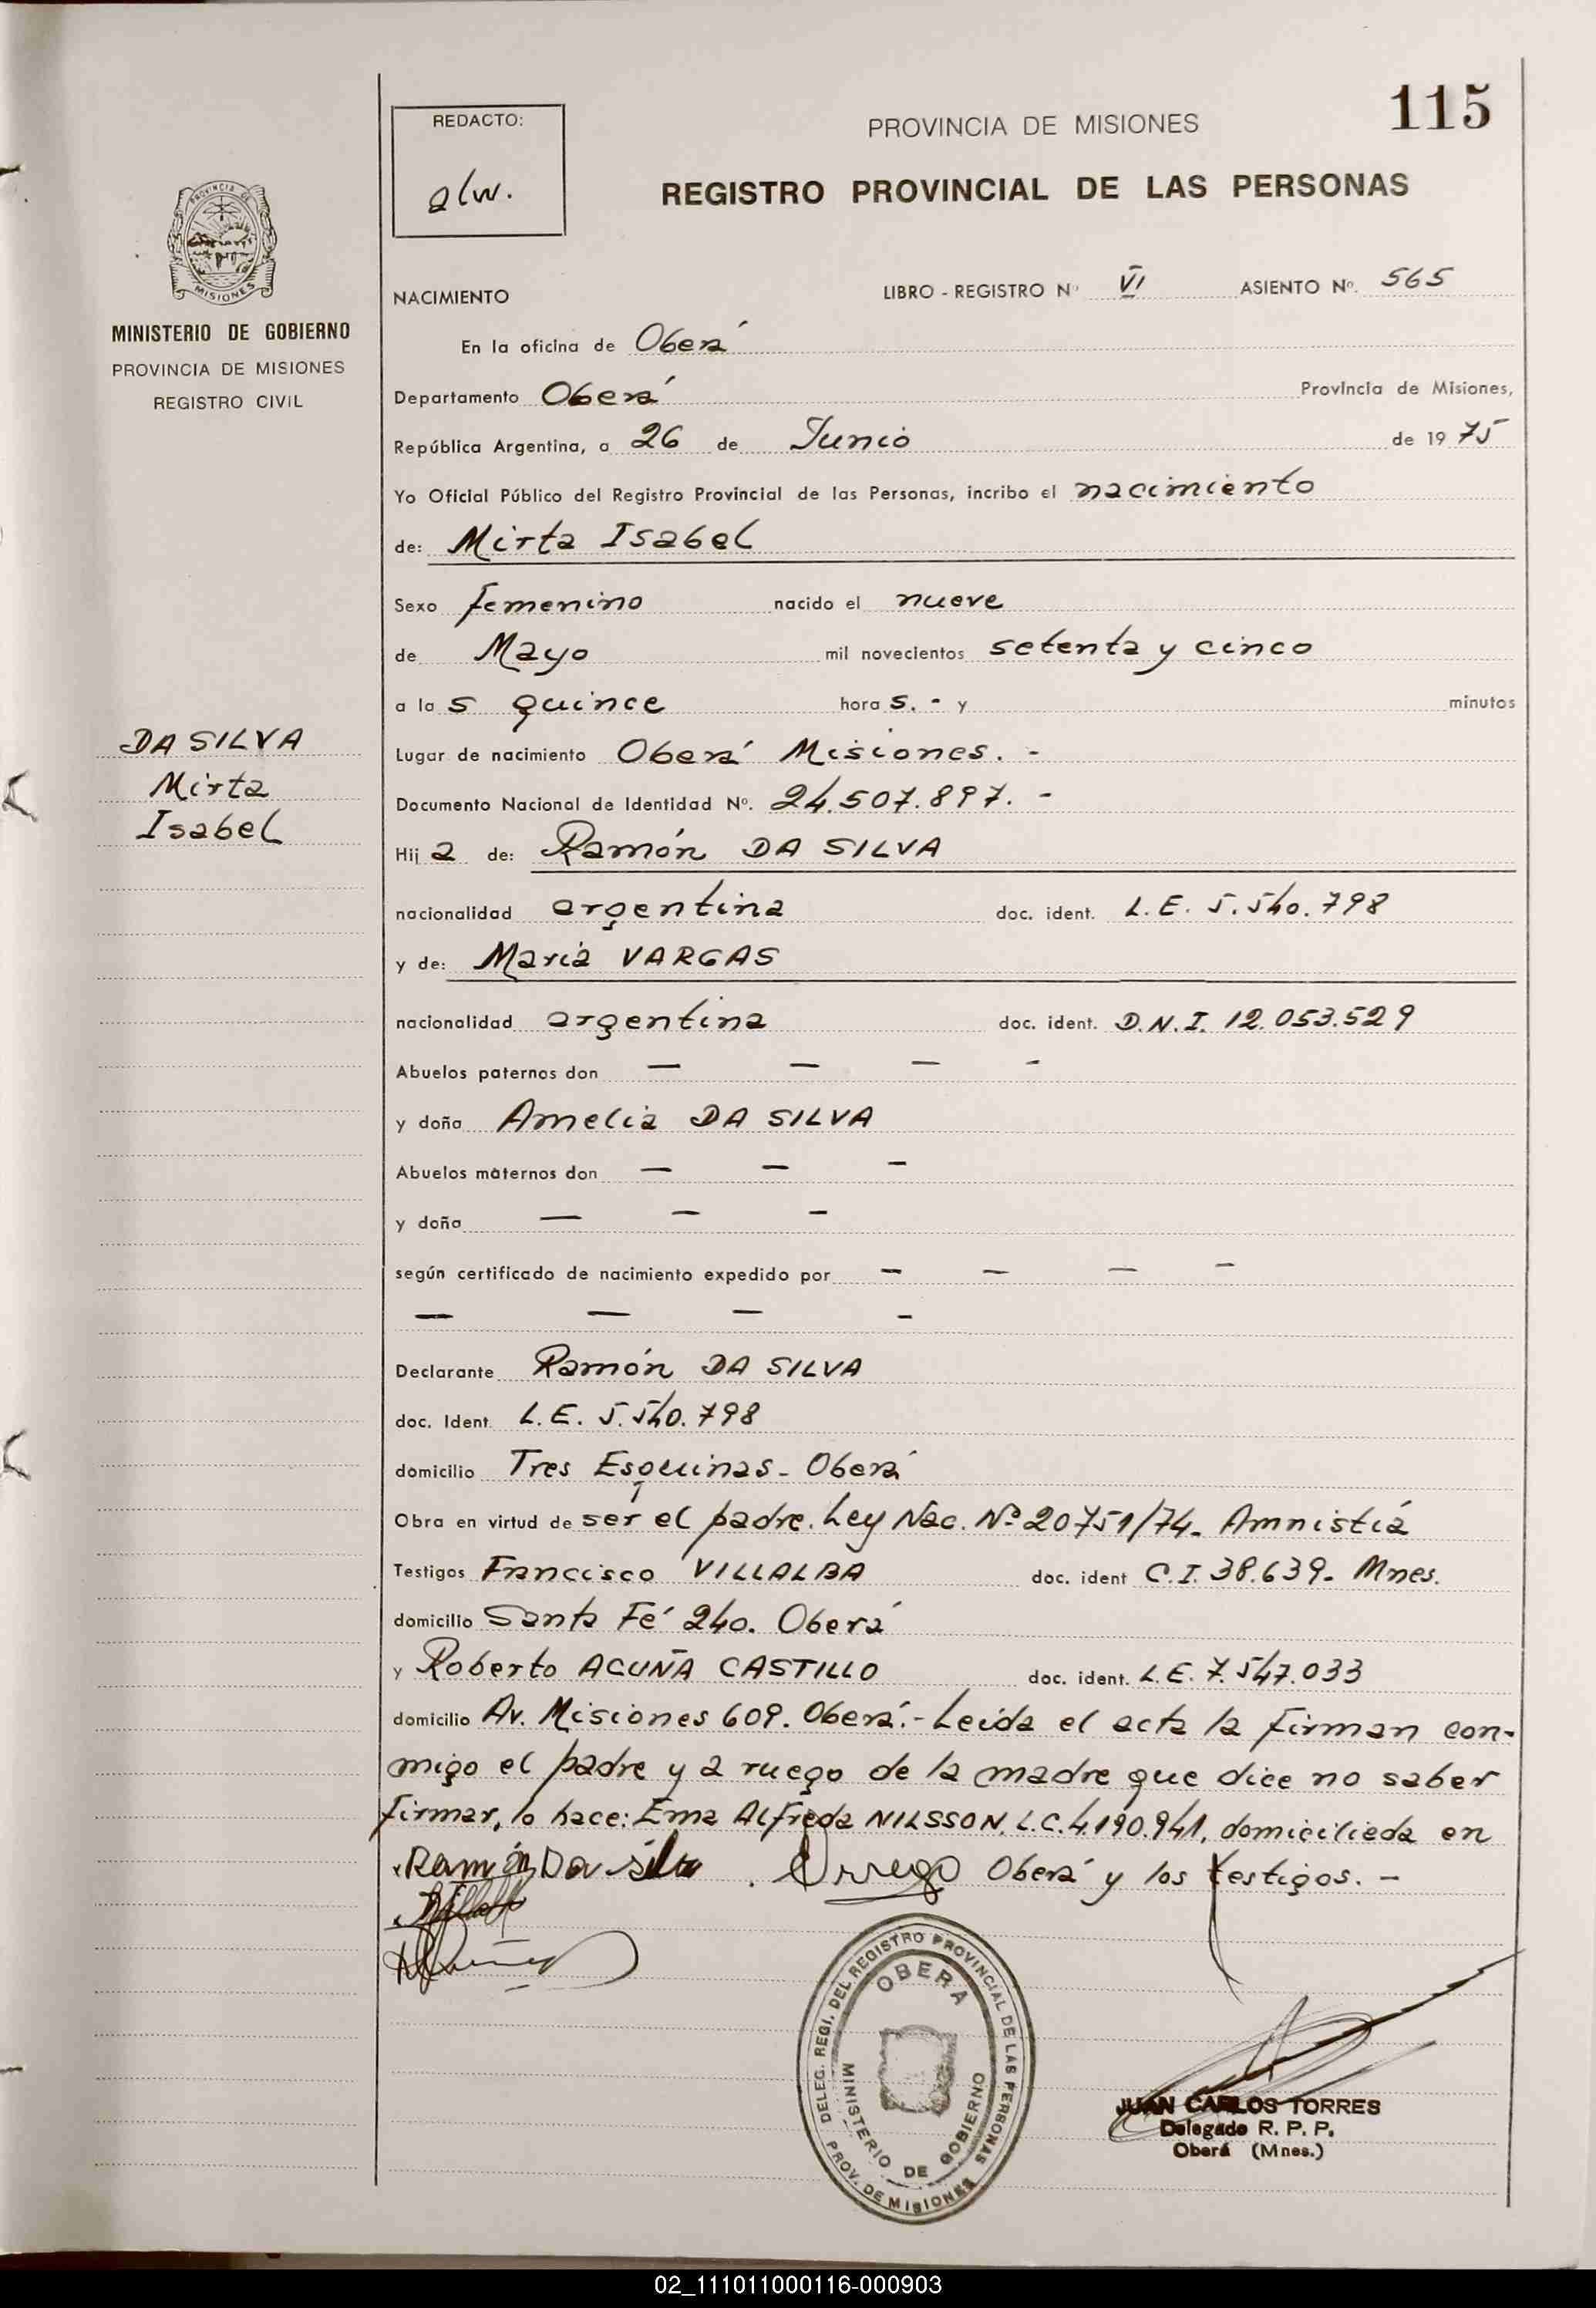 115
REDACTO:
alw.
PROVINCIA DE MISIONES
REGISTRO PROVINCIAL DE LAS PERSONAS
PROVINCIA DE
MISIONES
MINISTERIO DE GOBIERNO
PROVINCIA DE MISIONES
REGISTRO CIVIL
NACIMIENTO
LIBRO - REGISTRO Nº VI ASIENTO Nº. 565
En la oficina de Oberá
Departamento Oberá Provincia de Misiones,
República Argentina, a 26 de Junio de 1975
Yo Oficial Público del Registro Provincial de las Personas, incribo el nacimiento
de: Mirta Isabel
Sexo femenino nacido el nueve
de Mayo mil novecientos setenta y cinco
a las quince horas. - y minutos
Lugar de nacimiento Oberá Misiones. -
Documento Nacional de Identidad Nº. 24.507.897. -
Hija de: Ramón DA SILVA
nacionalidad argentina doc. ident. L.E. 5.540.798
y de: María VARGAS
nacionalidad argentina doc. ident. D.N.I. 12.053.529
Abuelos paternos don — — — -
y doña Amelia DA SILVA
Abuelos maternos don — — -
y doña — — -
según certificado de nacimiento expedido por - — — -
— — — -
Declarante Ramón DA SILVA
doc. Ident. L.E. 5.540.798
domicilio Tres Esquinas - Oberá
Obra en virtud de ser el padre. Ley Nac. Nº 20751/74. Amnistía
Testigos Francisco VILLALBA doc. ident C.I. 38.639. Mnes.
domicilio Santa Fé 240. Oberá
y Roberto ACUÑA CASTILLO doc. ident. L.E. 7.547.033
domicilio Av. Misiones 609. Oberá.- Leída el acta la firman con-
migo el padre y a ruego de la madre que dice no saber
firmar, lo hace: Ema Alfreda NILSSON. L.C. 4.190.941, domiciliada en
Ramón Da silva Oberá y los testigos. -
DA SILVA
Mirta
Isabel
DELEG. REGI. DEL REGISTRO PROVINCIAL DE LAS PERSONAS
OBERA
MINISTERIO DE GOBIERNO
PROV. DE MISIONES
JUAN CARLOS TORRES
Delegado R. P. P.
Oberá (Mnes.)
02_111011000116-000903